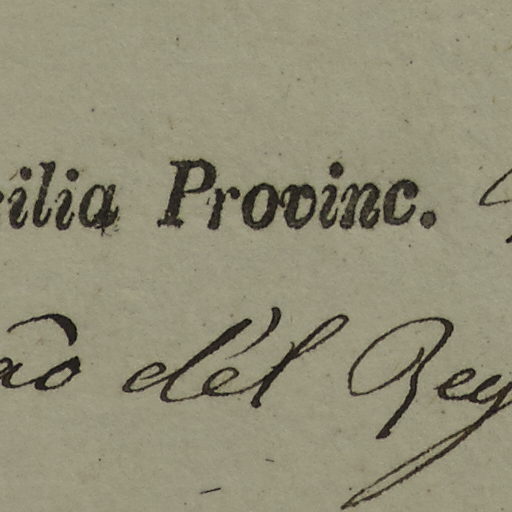 ilia Provinc.
ão d'el Rey